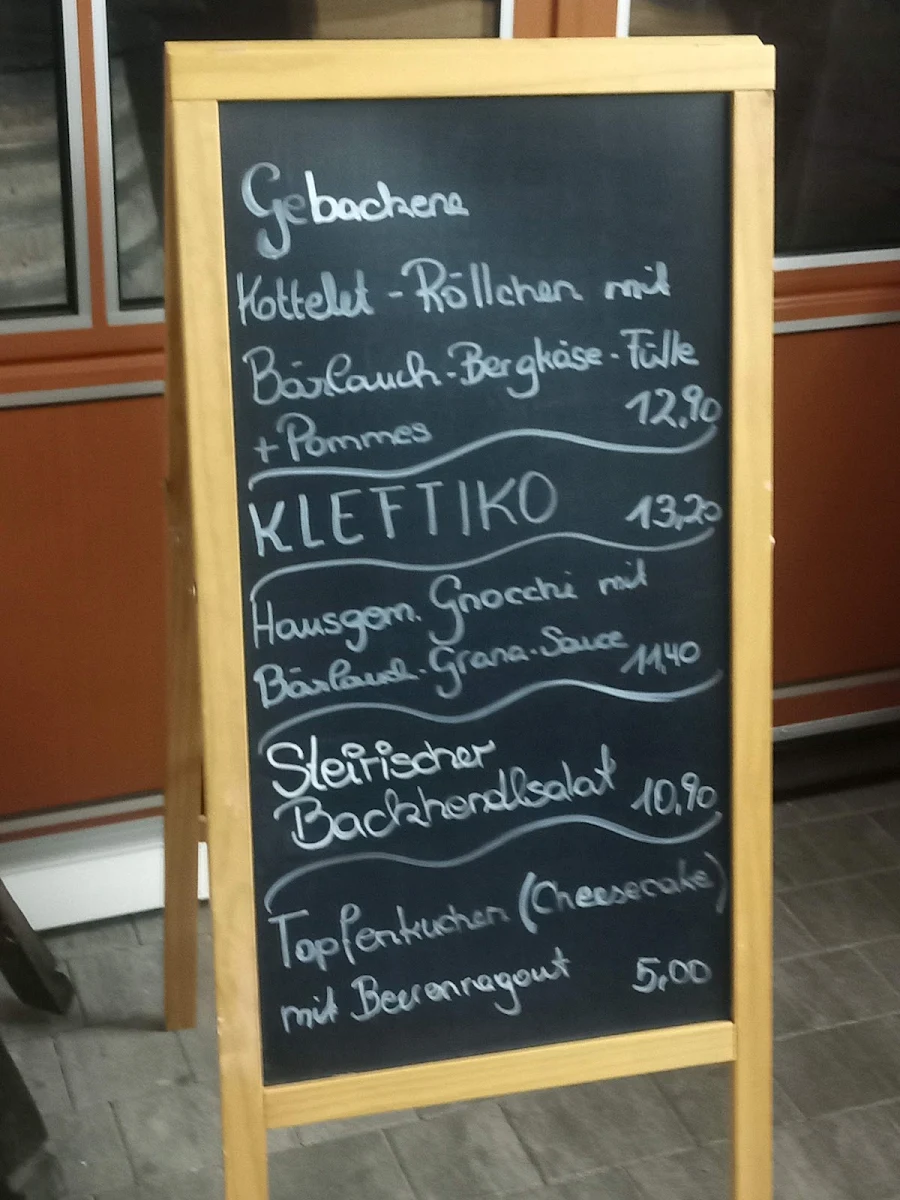 Gebackene
Kottelet - Röllchen mit
Bärlauch-Bergkäse-Fülle
+ Pommes 12,90
KLEFTIKO 13,20
Hausgem. Gnocchi mit
Bärlauch-Grana-Sauce 11,40
Steirischer
Backhendlsalat 10,90
Topfenkuchen (Cheesecake)
mit Beerenragout 5,00